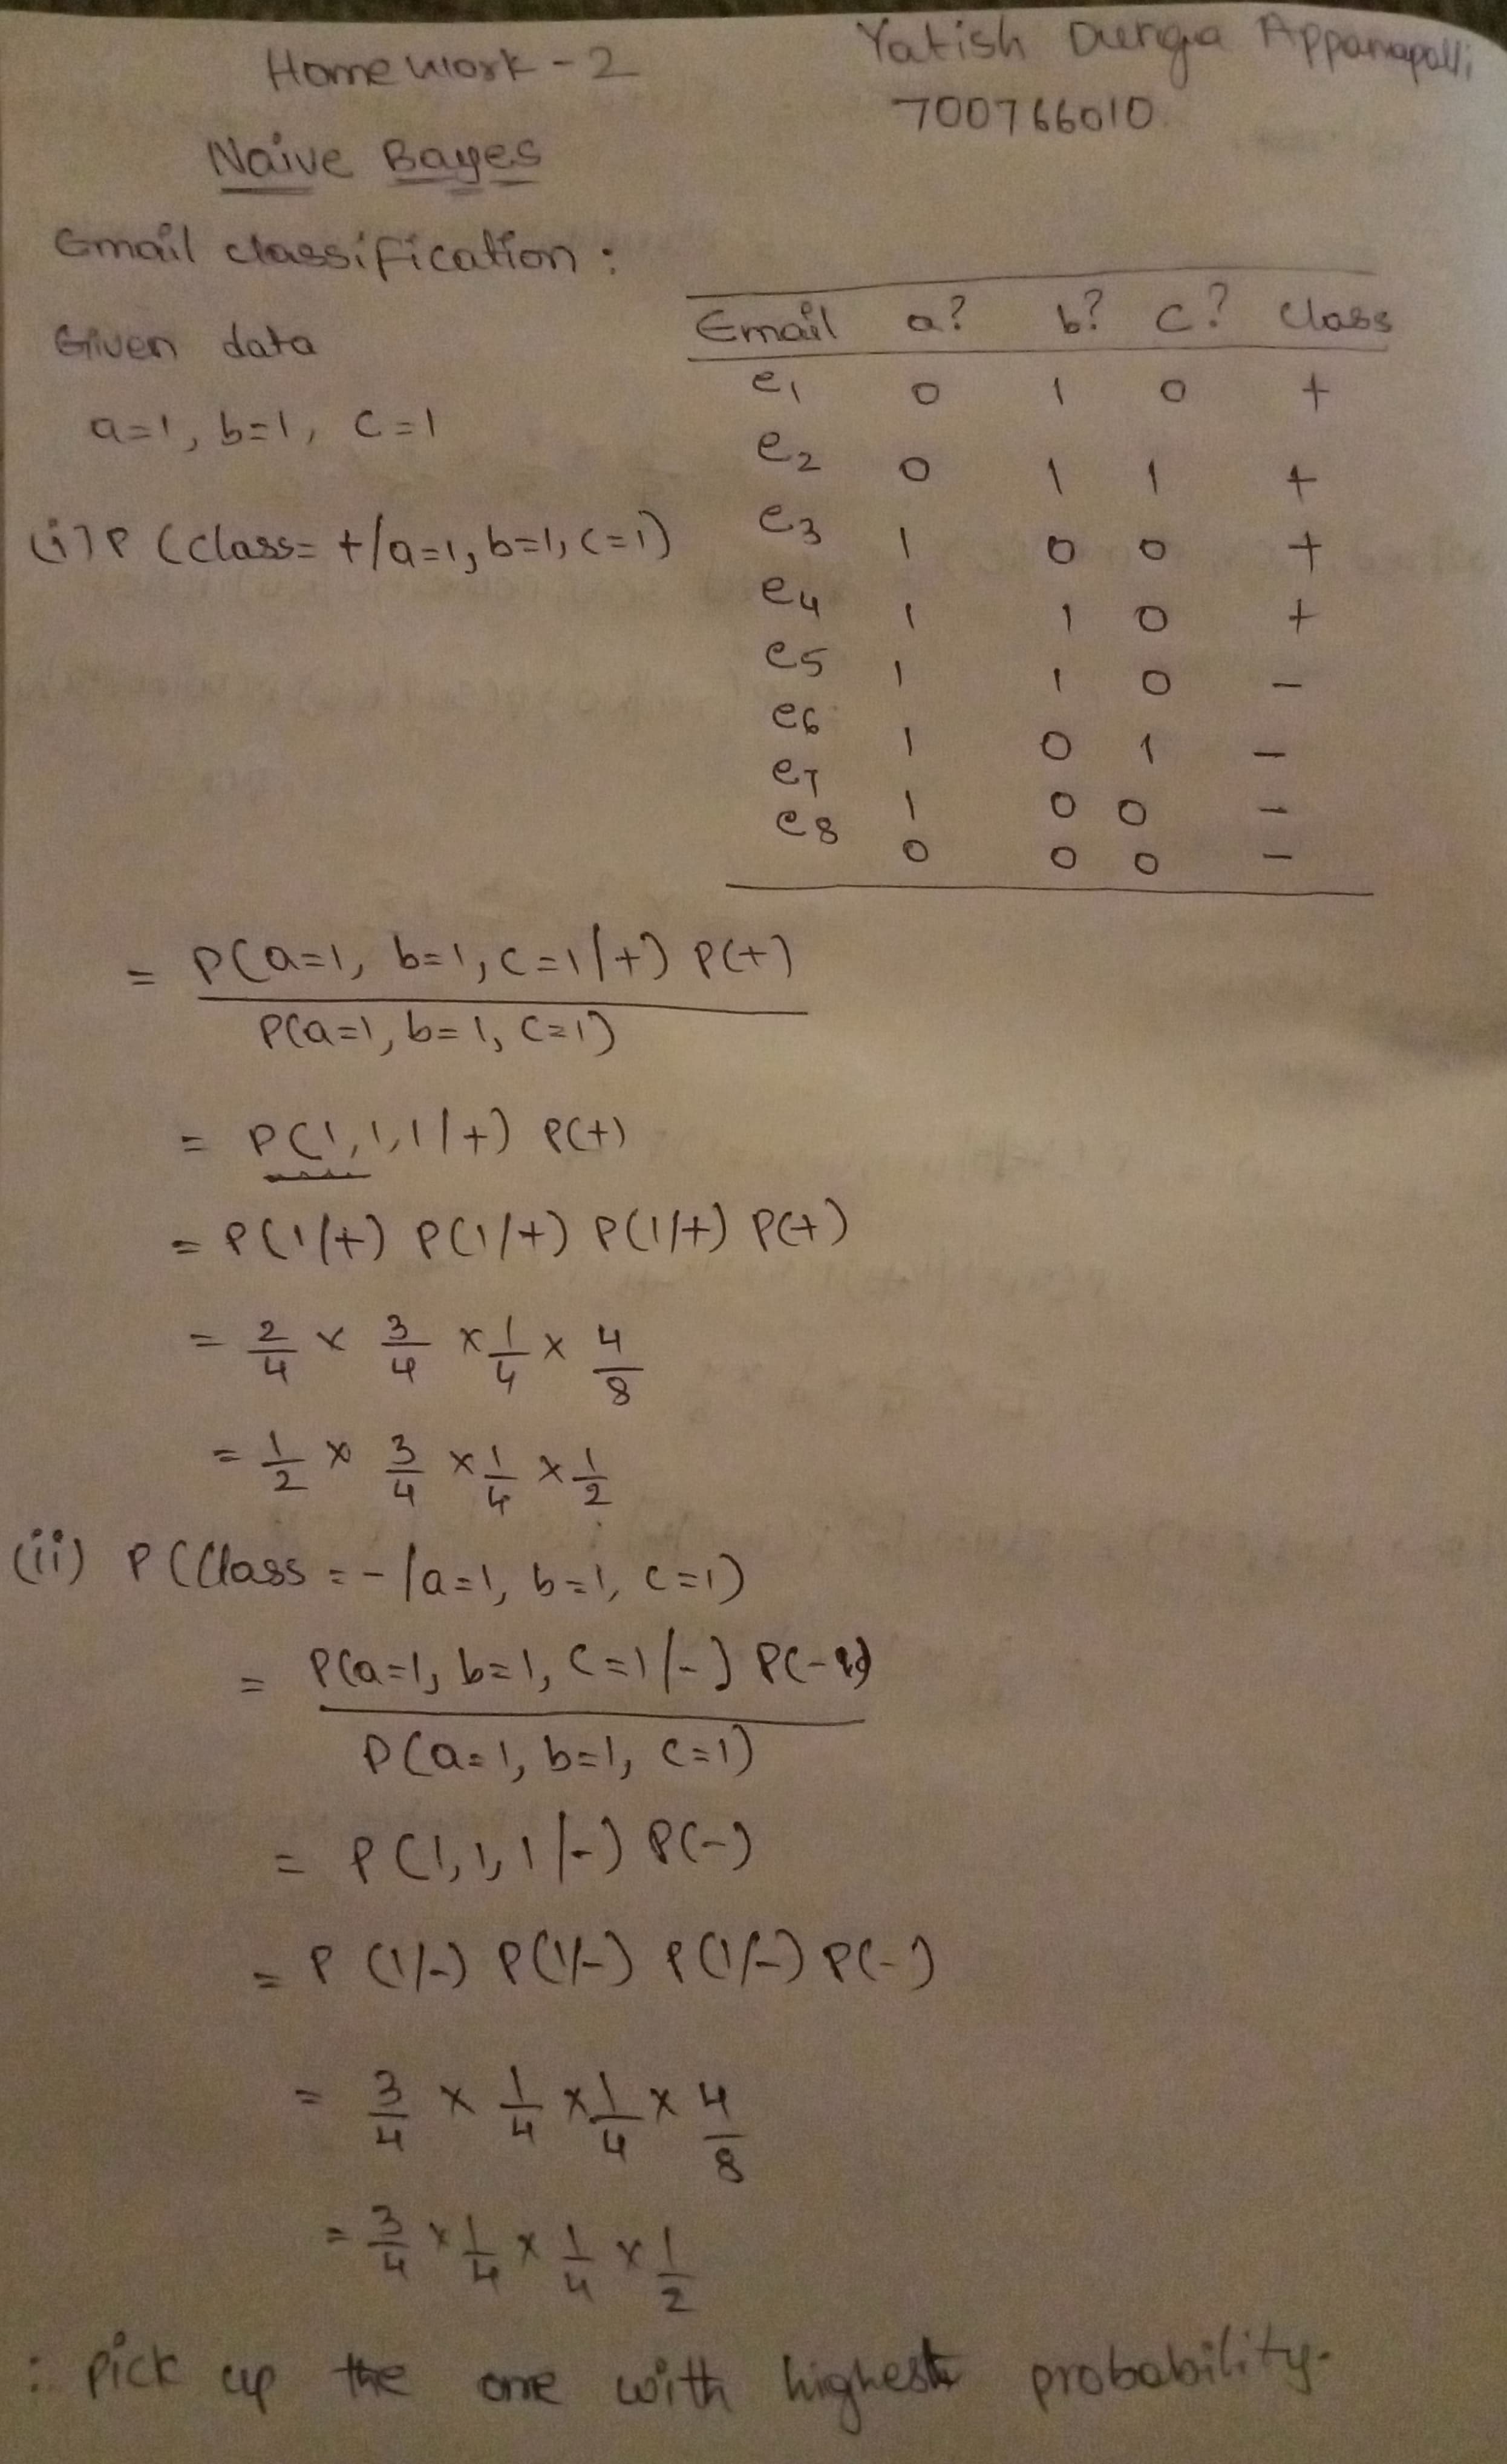 Homework - 2
Yatish Durga Appanapalli
700766010
Naive Bayes
Email classification :
Given data
a=1, b=1, c=1
(i) P (class= +/a=1, b=1, c=1)
Email a? b? c? Class
e1 0 1 0 +
e2 0 1 1 +
e3 1 0 0 +
e4 1 1 0 +
e5 1 1 0 -
e6 1 0 1 -
e7 1 0 0 -
e8 0 0 0 -
= P(a=1, b=1, c=1/+) P(+)
P(a=1, b=1, c=1)
= P(1,1,1/+) P(+)
= P(1/+) P(1/+) P(1/+) P(+)
= 2/4 × 3/4 × 1/4 × 4/8
= 1/2 × 3/4 × 1/4 × 1/2
(ii) P (Class = - /a=1, b=1, c=1)
= P(a=1, b=1, c=1/-) P(-)
P(a=1, b=1, c=1)
= P(1,1,1/-) P(-)
= P (1/-) P(1/-) P(1/-) P(-)
= 3/4 × 1/4 × 1/4 × 4/8
= 3/4 × 1/4 × 1/4 × 1/2
: Pick up the one with highest probability.